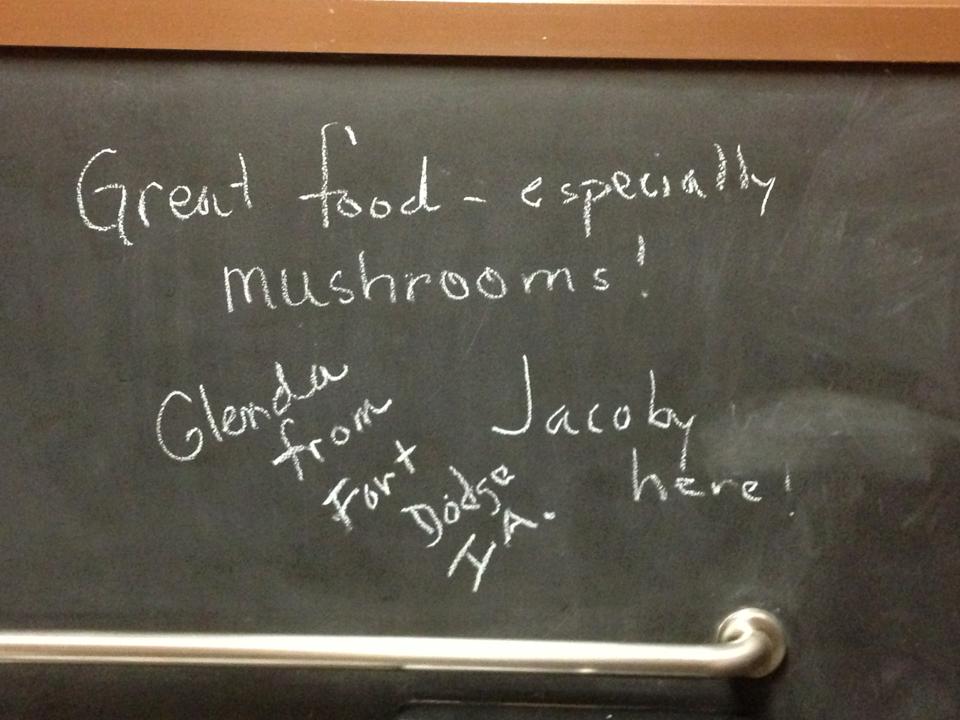 Great food - especially
mushrooms!
Glenda
from
Fort
Dodge
IA.
Jacoby
here!